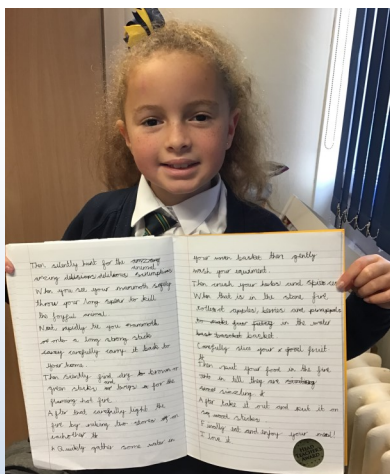 Then silently hunt for the amazing
animal
amazing delicious delicious scrumptious
When you see your mammoth safely
throw your long spear to kill
the joyful animal.
Next rapidly tie you mammoth
onto a long strong stick
carefully carry it back to
your home.
Then silently find dry brown or
green sticks or twigs for the
flaming hot fire
After that carefully light the
fire by using two stones
Quickly gather some water in
your woven basket then gently
wash your equipment.
Then wash your herbs and spices
When that is in the stone fire
collect apples, berries are
in the water
basket
Carefully slice your good fruit
it
Then put your food in the fire
in till they are
smelling
After take it out and put it on
sticks
Finally eat and enjoy your meal!
I love it